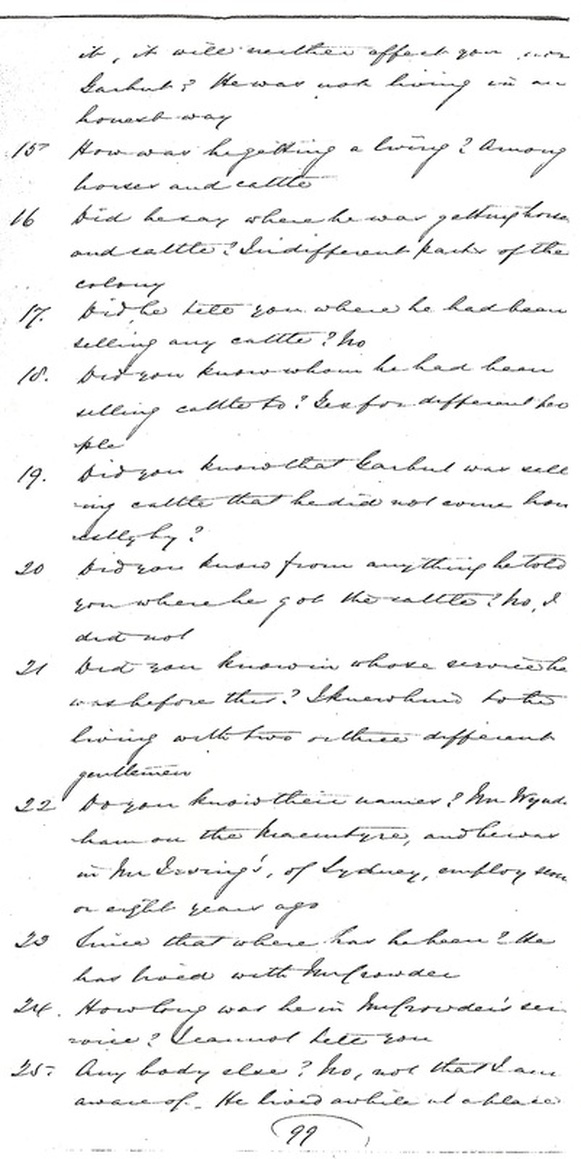 it, it will neither affect you nor
Garbut? He was not living in an
honest way
15 How was he getting a living? Among
horses and cattle
16 Did he say where he was getting horses
and cattle? In different parts of the
colony
17. Did he tell you where he had been
selling any cattle? No
18. Did you know whom he had been
selling cattle to? Yes for different peo
ple
19. Did you know that Garbut was sell
ing cattle that he did not come hon
estly by?
20 Did you know from anything he told
you where he got the cattle? No, I
did not
21 Did you know in whose service he
was before this? I knew him to be
living with two or three different
gentlemen
22 Do you know their names? Mr Wynd.
ham on the Macintyre, and he was
in Mr Irving's, of Sydney, employ
or eight years ago
23 Since that where has he been? He
has lived with Mr Crowder
24. How long was he in Mr Crowder's ser
vice? I cannot tell you
25. Any body else? No, not that I am
aware of. He lived awhile at a place
99